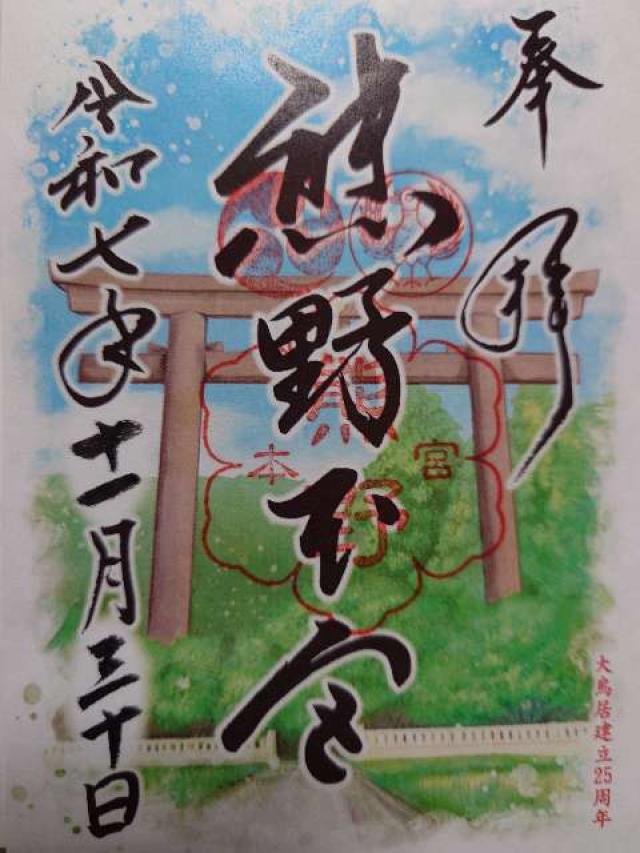 奉拝
熊野本宮
令和七年十一月三十日
熊野
本宮
大鳥居建立25周年